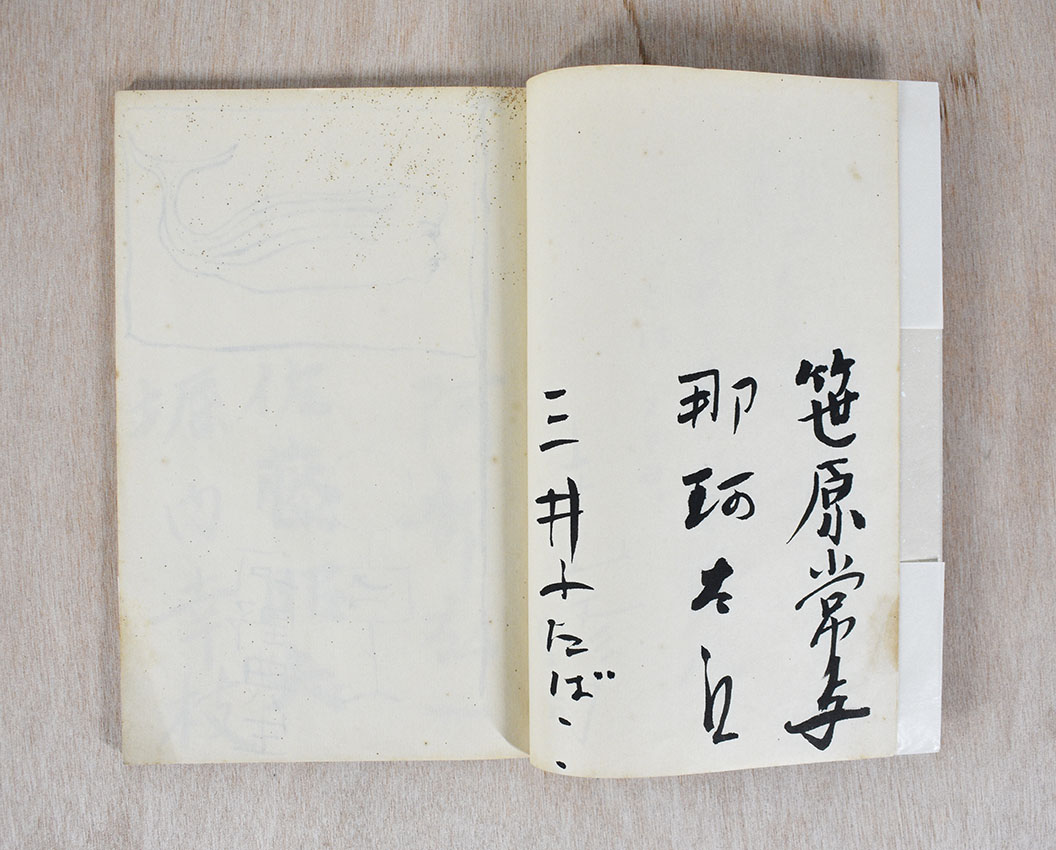 笹原常与
那珂太郎
三井ふたばこ